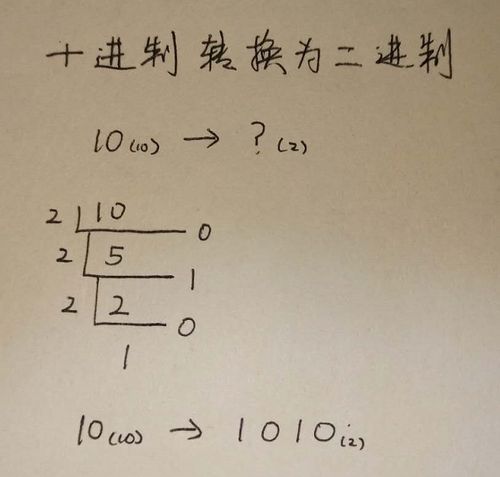 十进制转换为二进制
10(10) → ?(2)
2 10 0
2 5 1
2 2 0
1
10(10) → 1010(2)